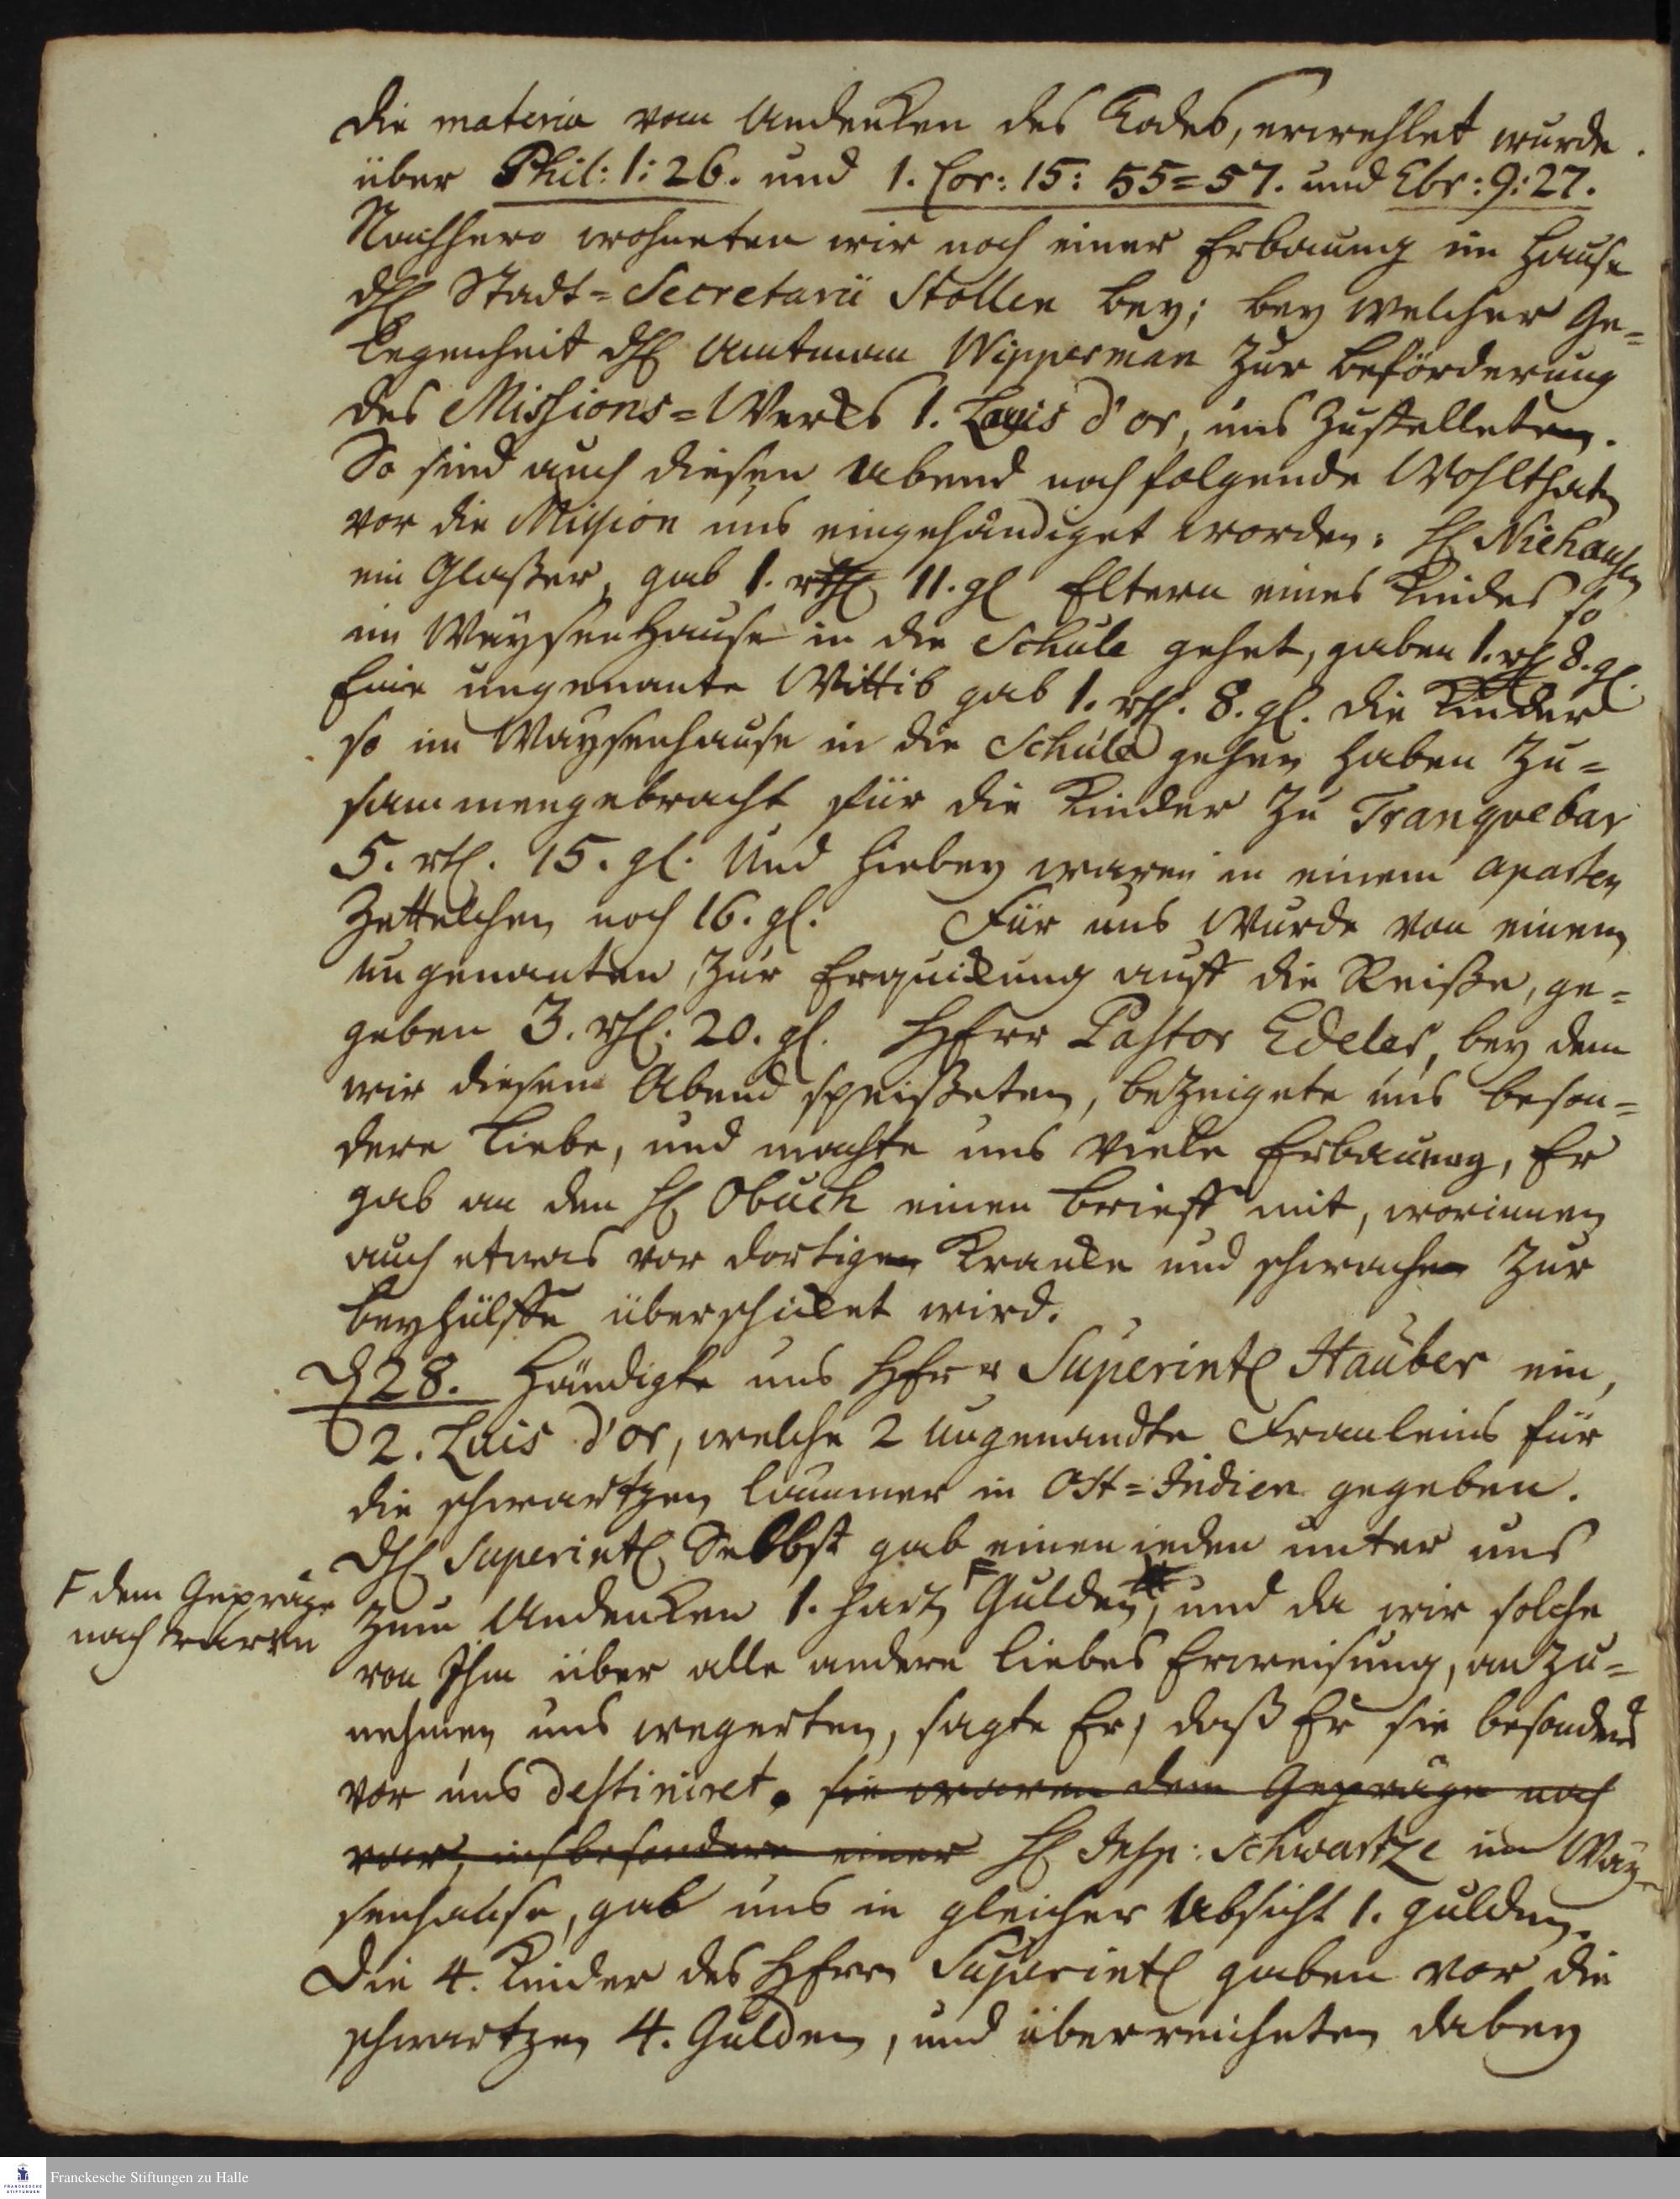 die materia vom Andencken des Todes, erwehlet wurde.
über Phil: 1: 26. und 1. Cor: 15: 55=57. und Ebr: 9: 27.
Nachhero wohneten wir noch einer Erbauung im Hause
dH Stadt=Secretarii Stollen bey; bey welcher Ge=
legenheit dH Amtmam Wipperman zur beförderung
des Missions=Wercks 1. Louis d'or, uns zustelleten.
So sind auch diesen Abend noch folgende Wohlthaten
vor die Mission uns eingehändiget worden: H Niehausen
ein Glaßer, gab 1. rth 11. gl Eltern eines Kindes so
im Weysenhause in die Schule gehet, gaben 1. rth 8. gl.
Eine ungenante Wittib gab 1. rth. 8. gl. die Kinder
so im Waysenhause in die Schule gehen haben zu=
sammengebracht für die Kinder zu Tranquebar
5. rth. 15. gl. Und hiebey waren in einem aparten
Zettelchen noch 16. gl. Für uns wurde von einem
ungenanten, zur Erquickung auff die Reiße, ge=
geben 3. rth. 20. gl. HErr Pastor Edeler, bey dem
wir diesem Abend speißeten, bezeigete uns beson=
dere Liebe, und machte uns viele Erbauung, Er
gab an den H Obuch einen brieff mit, worinnen
auch etwas vor dortigen Krancke und schwache zur
beyhülffe überschicket wird.
D 28. händigte uns HErr Superint Hauber ein,
2. Luis d'or, welche 2 ungenandte Frauleins für
die schwartzen Lämmer in Ost=Indien gegeben.
DH Superint Selbst gab einen ieden unter uns
zum Andencken 1. hart F Gulden, und da wir solche
F dem Gepräge
nach raren
von Ihm über alle andere Liebes Erweisung, anzu=
nehmen uns wegerten, sagte Er, daß Er sie besonders
vor uns destiniret. sie waren dem Gepräge nach
rar, insbesondere einer H Insp: Schwartze im Way=
senhause, gab uns in gleicher Absicht 1. gulden.
Die 4. Kinder des HErrn Superint gaben vor die
schwartzen 4. Gulden, und überreichten dabey
Franckesche Stiftungen zu Halle
FRANCKESCHE
STIFTUNGEN